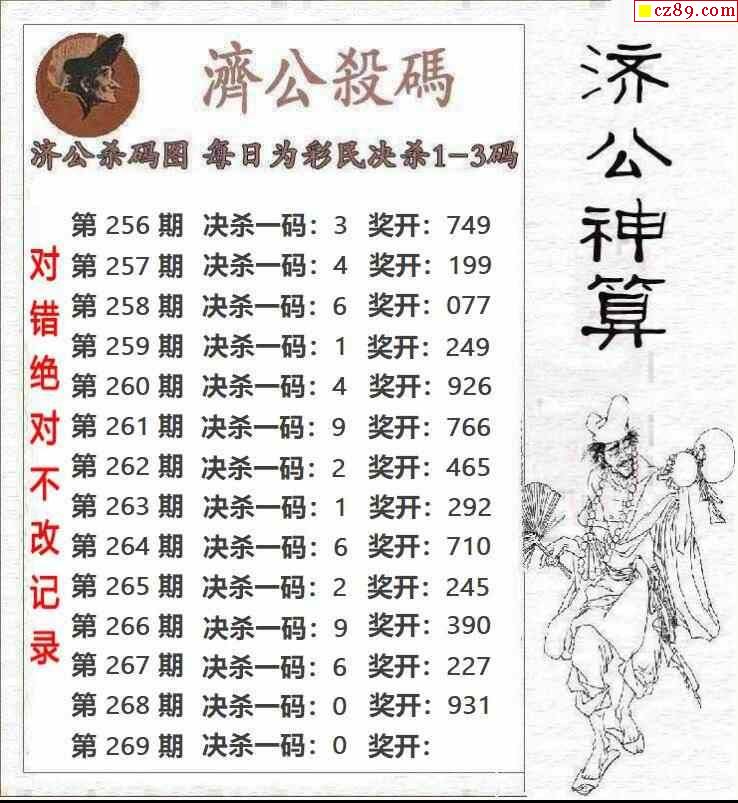 cz89.com
濟公殺碼
济公杀码图 每日为彩民决杀1-3码
第 256 期 决杀一码：3 奖开：749
第 257 期 决杀一码：4 奖开：199
第 258 期 决杀一码：6 奖开：077
第 259 期 决杀一码：1 奖开：249
第 260 期 决杀一码：4 奖开：926
第 261 期 决杀一码：9 奖开：766
第 262 期 决杀一码：2 奖开：465
第 263 期 决杀一码：1 奖开：292
第 264 期 决杀一码：6 奖开：710
第 265 期 决杀一码：2 奖开：245
第 266 期 决杀一码：9 奖开：390
第 267 期 决杀一码：6 奖开：227
第 268 期 决杀一码：0 奖开：931
第 269 期 决杀一码：0 奖开：
对错绝对不改记录
济公神算